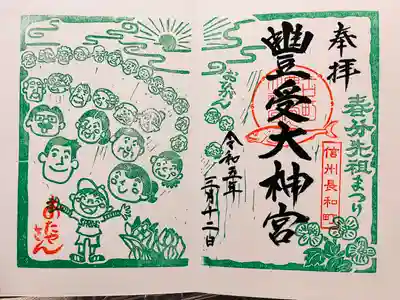 奉拝
春分先祖まつり
信州長和町
豊受大神宮
令和五年
三月十二日
おひがん
おたやさん